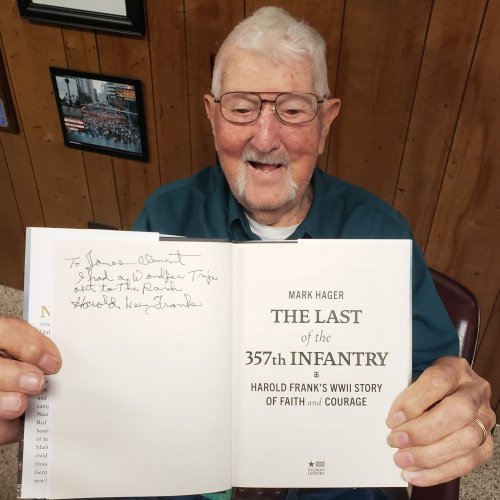 To James Clement
I had a Wondfer Trip
out to The Ranch
Harold Frank
MARK HAGER
THE LAST
of the
357th INFANTRY
HAROLD FRANK'S WWII STORY
OF FAITH and COURAGE
REGNERY
HISTORY